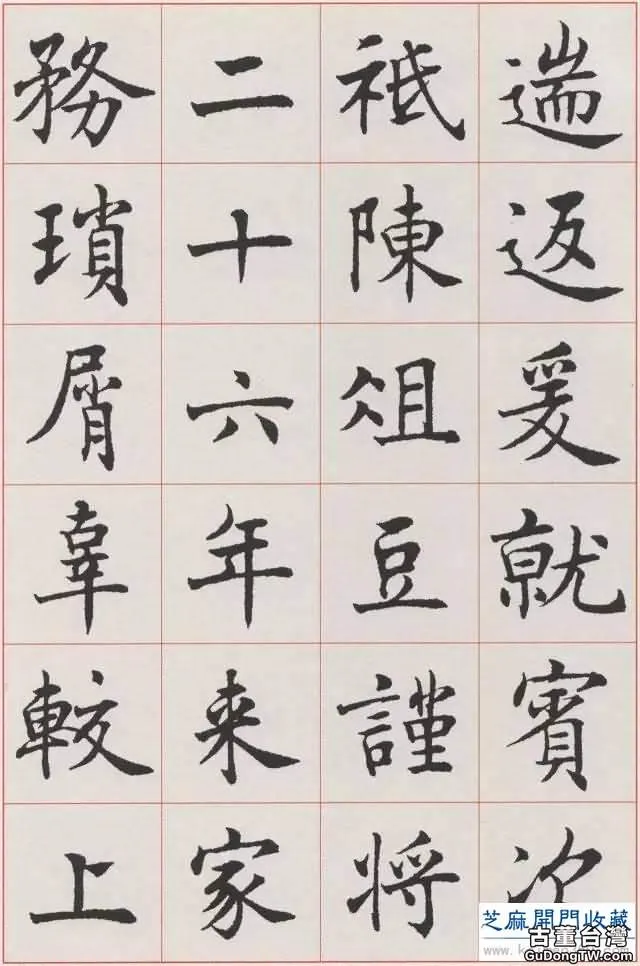 遄返爰就賓次
祗陳俎豆謹将
二十六年来家
務瑣屑辜較上
芝麻開門收藏
古董台灣
GuDongTW.com